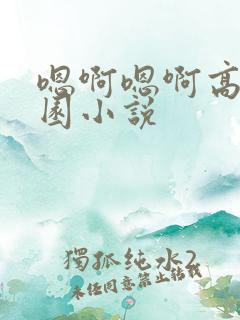 嗯啊嗯啊高
园小说
獨孤纯水2
未经同意禁止转载